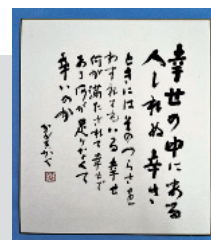 幸せの中にある
人しれぬ幸さ
ときにはそのつらさを
わすれてもいる幸せ
何が満たされて幸せで
あり何が足りなくて
幸いのか